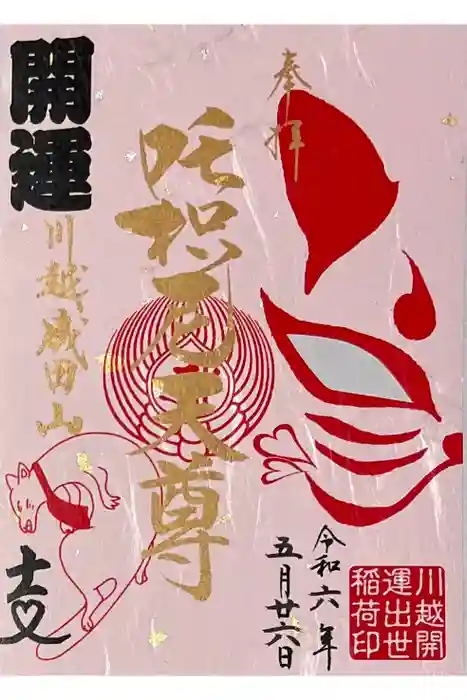 奉拝
咤枳尼天尊
開運
川越成田山
十二支
令和六年
五月廿六日
川越開
運出世
稲荷印